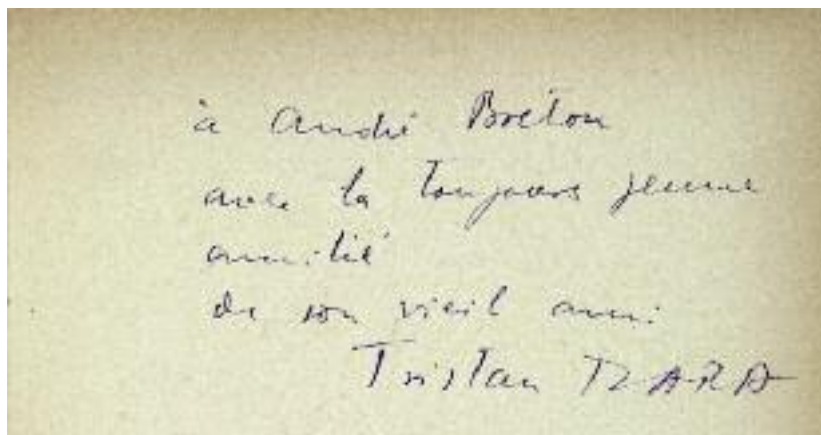 à André Breton
avec la toujours jeune
amitié
de son vieil ami
Tristan TZARA